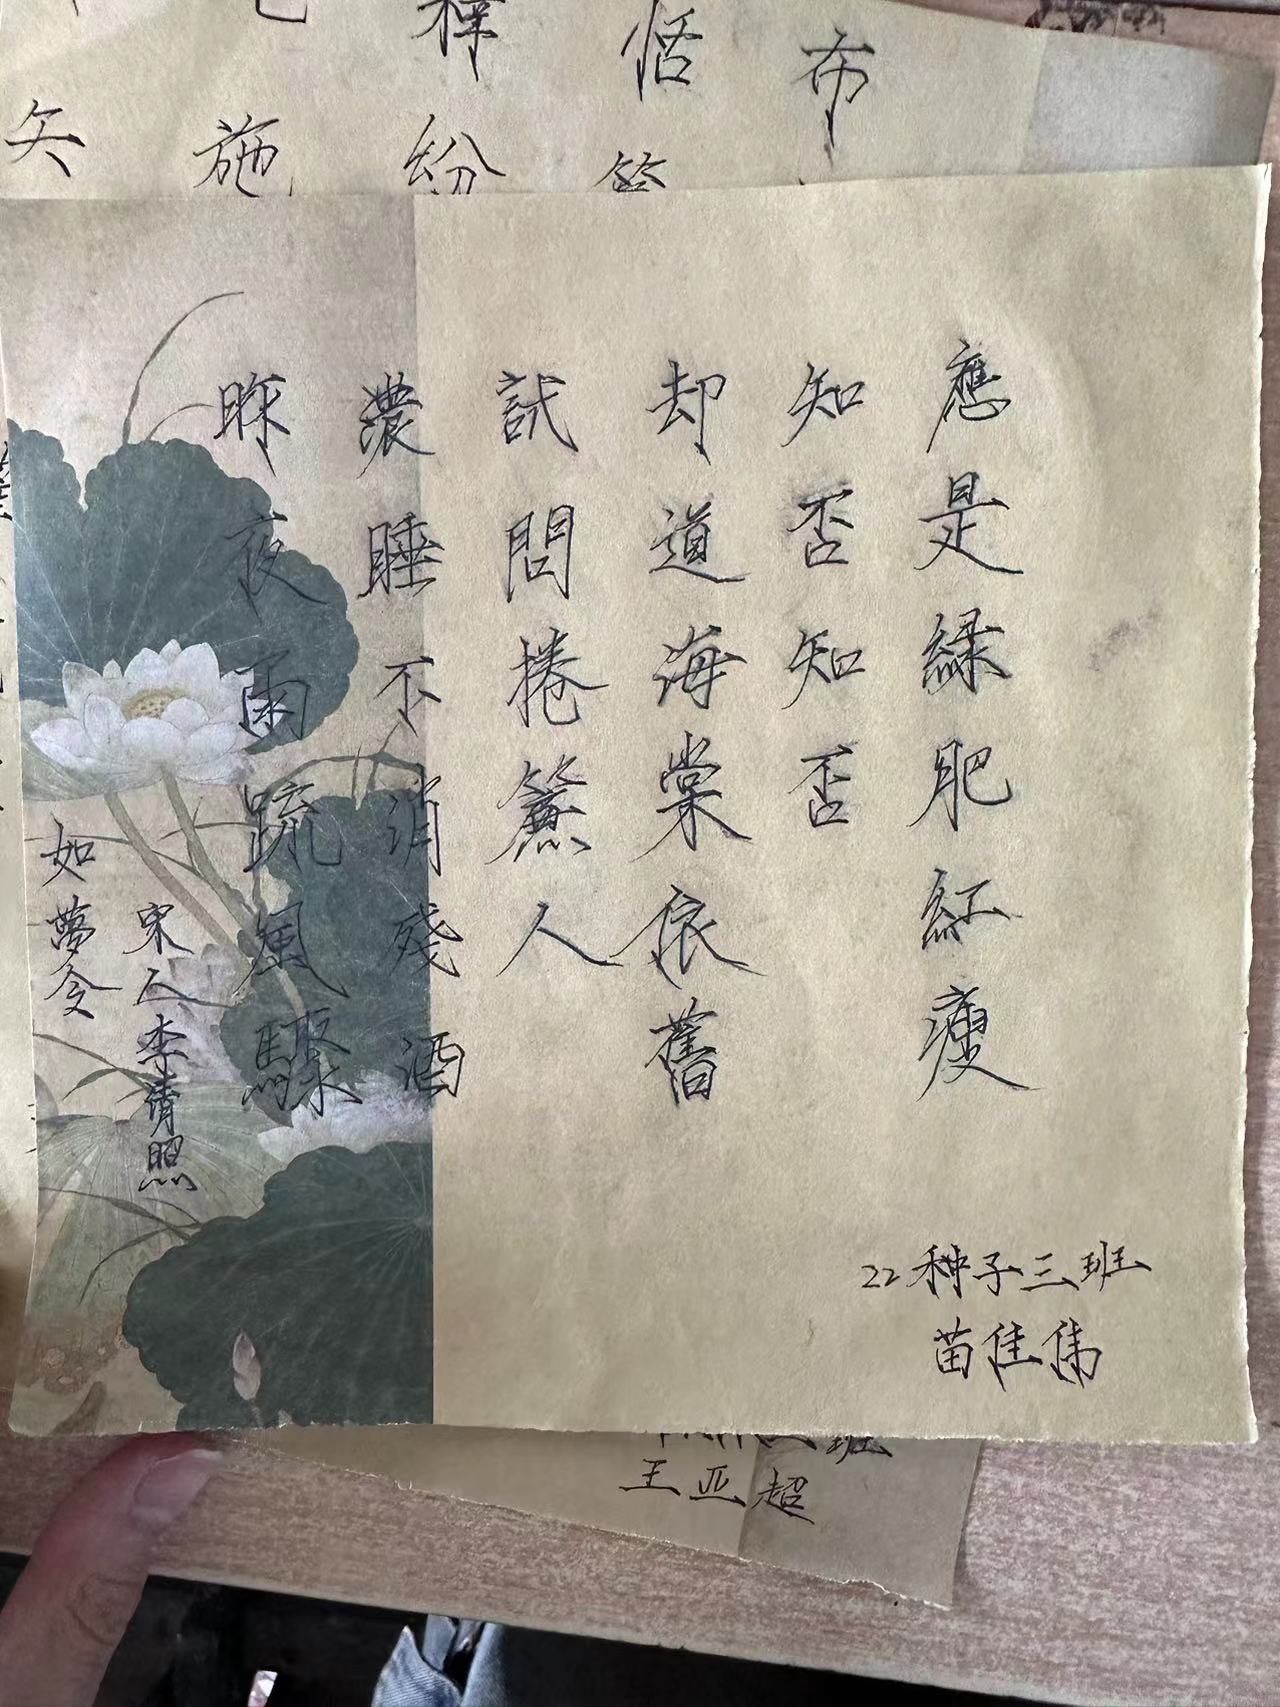 如夢令
宋人李清照
昨夜雨疏風驟
濃睡不消殘酒
試問捲簾人
却道海棠依舊
知否知否
應是綠肥紅瘦
22种子三班
苗佳伟
布
恬
釋
紛
施
矢
班
王亚超